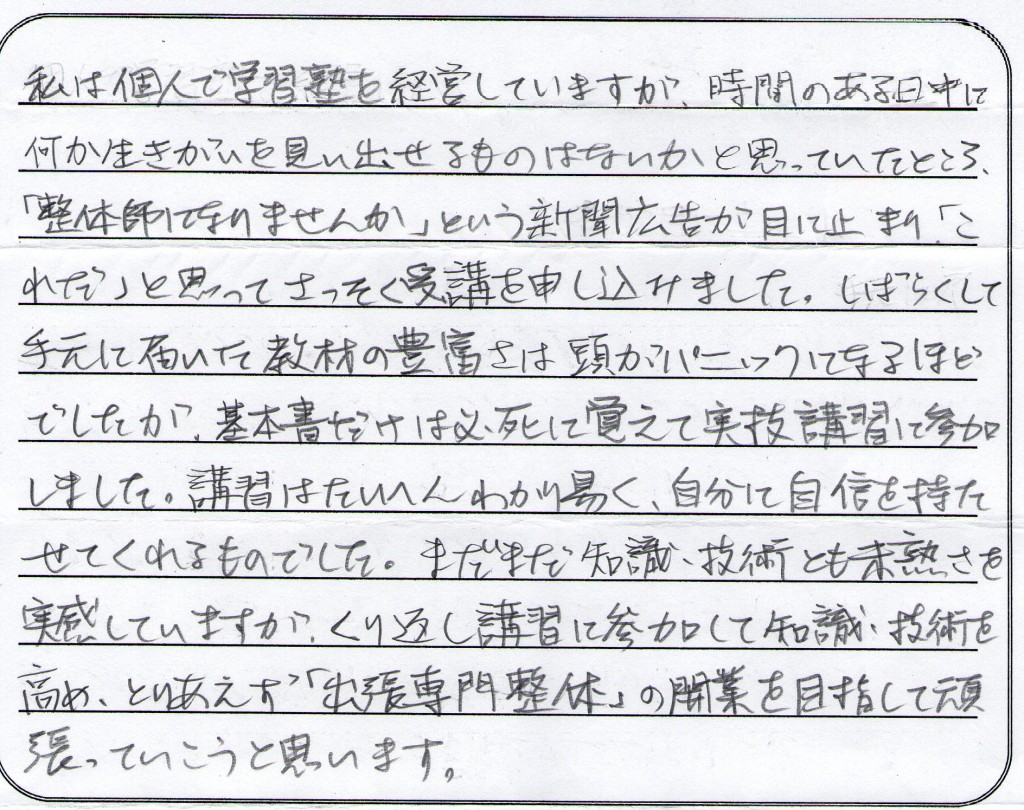 私は個人で学習塾を経営していますが、時間のある日中に
何か生きがいを見い出せるものはないかと思っていたところ、
「整体師になりませんか」という新聞広告が目に止まり、「こ
れだ」と思ってさっそく受講を申し込みました。しばらくして
手元に届いた教材の豊富さは頭がパニックになるほど
でしたが、基本書だけは必死に覚えて実技講習に参加
しました。講習はたいへんわかり易く、自分に自信を持た
せてくれるものでした。まだまだ知識、技術とも未熟さを
実感していますが、くり返し講習に参加して知識、技術を
高め、とりあえず「出張専門整体」の開業を目指して頑
張っていこうと思います。